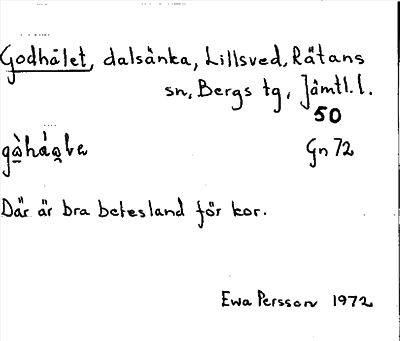 Godhålet, dalsänka, Lillsved, Rätans
sn, Bergs tg, Jämtl. l.
50
Gn 72
Där är bra betesland för kor.
Ewa Persson 1972